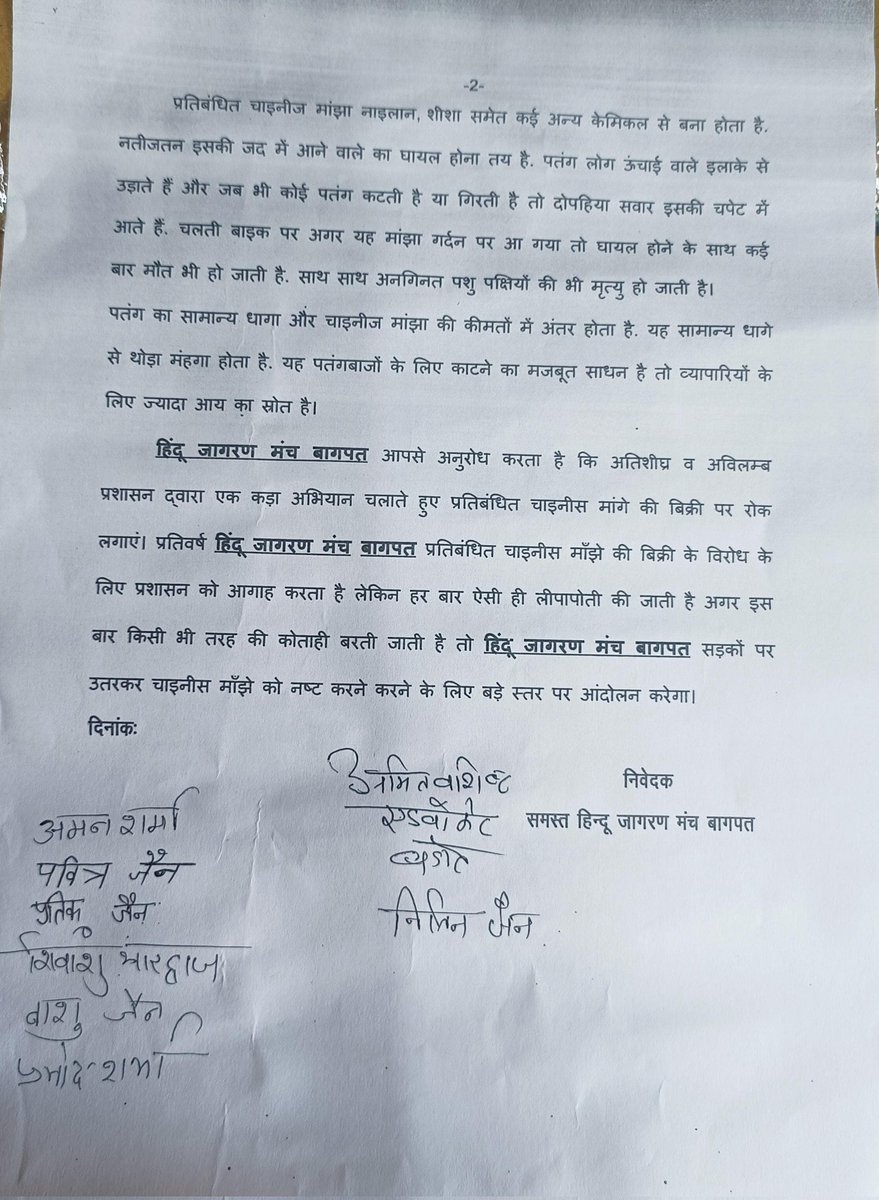 -2-
प्रतिबंधित चाइनीज मांझा नाइलान, शीशा समेत कई अन्य केमिकल से बना होता है.
नतीजतन इसकी जद में आने वाले का घायल होना तय है. पतंग लोग ऊंचाई वाले इलाके से
उड़ाते हैं और जब भी कोई पतंग कटती है या गिरती है तो दोपहिया सवार इसकी चपेट में
आते हैं. चलती बाइक पर अगर यह मांझा गर्दन पर आ गया तो घायल होने के साथ कई
बार मौत भी हो जाती है. साथ साथ अनगिनत पशु पक्षियों की भी मृत्यु हो जाती है।
पतंग का सामान्य धागा और चाइनीज मांझा की कीमतों में अंतर होता है. यह सामान्य धागे
से थोड़ा मंहगा होता है. यह पतंगबाजों के लिए काटने का मजबूत साधन है तो व्यापारियों के
लिए ज्यादा आय का स्रोत है।
हिंदू जागरण मंच बागपत आपसे अनुरोध करता है कि अतिशीघ्र व अविलम्ब
प्रशासन द्वारा एक कड़ा अभियान चलाते हुए प्रतिबंधित चाइनीस मांगे की बिक्री पर रोक
लगाएं। प्रतिवर्ष हिंदू जागरण मंच बागपत प्रतिबंधित चाइनीस माँझे की बिक्री के विरोध के
लिए प्रशासन को आगाह करता है लेकिन हर बार ऐसी ही लीपापोती की जाती है अगर इस
बार किसी भी तरह की कोताही बरती जाती है तो हिंदू जागरण मंच बागपत सड़कों पर
उतरकर चाइनीस माँझे को नष्ट करने करने के लिए बड़े स्तर पर आंदोलन करेगा।
दिनांकः
निवेदक
समस्त हिन्दू जागरण मंच बागपत
अमित वशिष्ट
एडवोकेट
बड़ौत
जैन
अमन शर्मा
पवित्र जैन
प्रतिक जैन
शिवांशु भारद्वाज
वाशु जैन
प्रमोद शर्मा